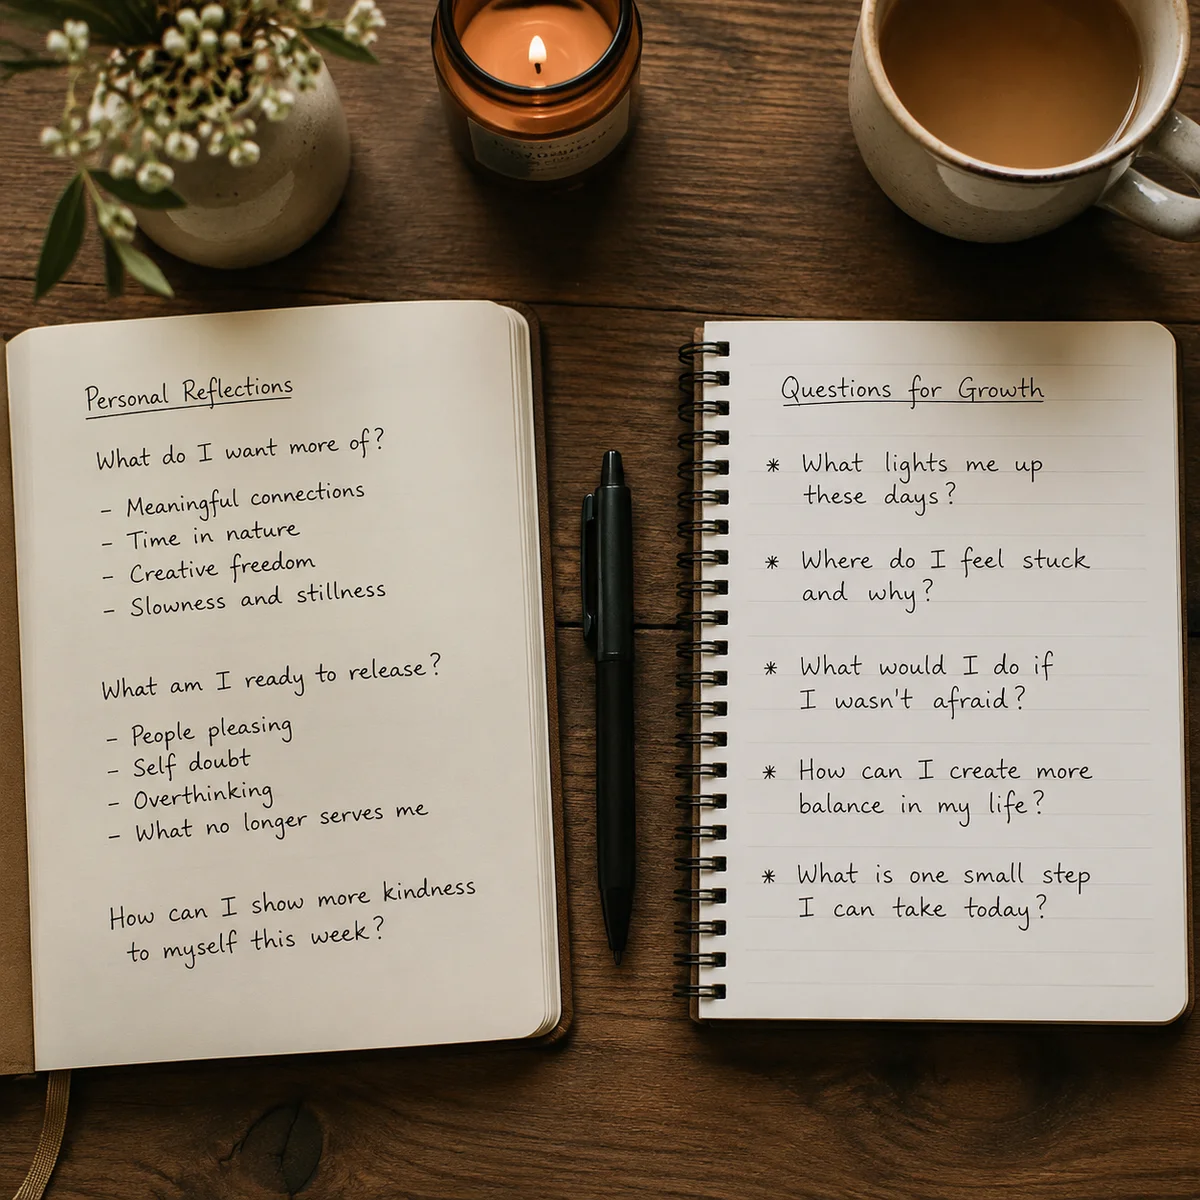 Personal Reflections
What do I want more of?
- Meaningful connections
- Time in nature
- Creative freedom
- Slowness and stillness
What am I ready to release?
- People pleasing
- Self doubt
- Overthinking
- What no longer serves me
How can I show more kindness
to myself this week?
Questions for Growth
* What lights me up
these days?
* Where do I feel stuck
and why?
* What would I do if
I wasn't afraid?
* How can I create more
balance in my life?
* What is one small step
I can take today?